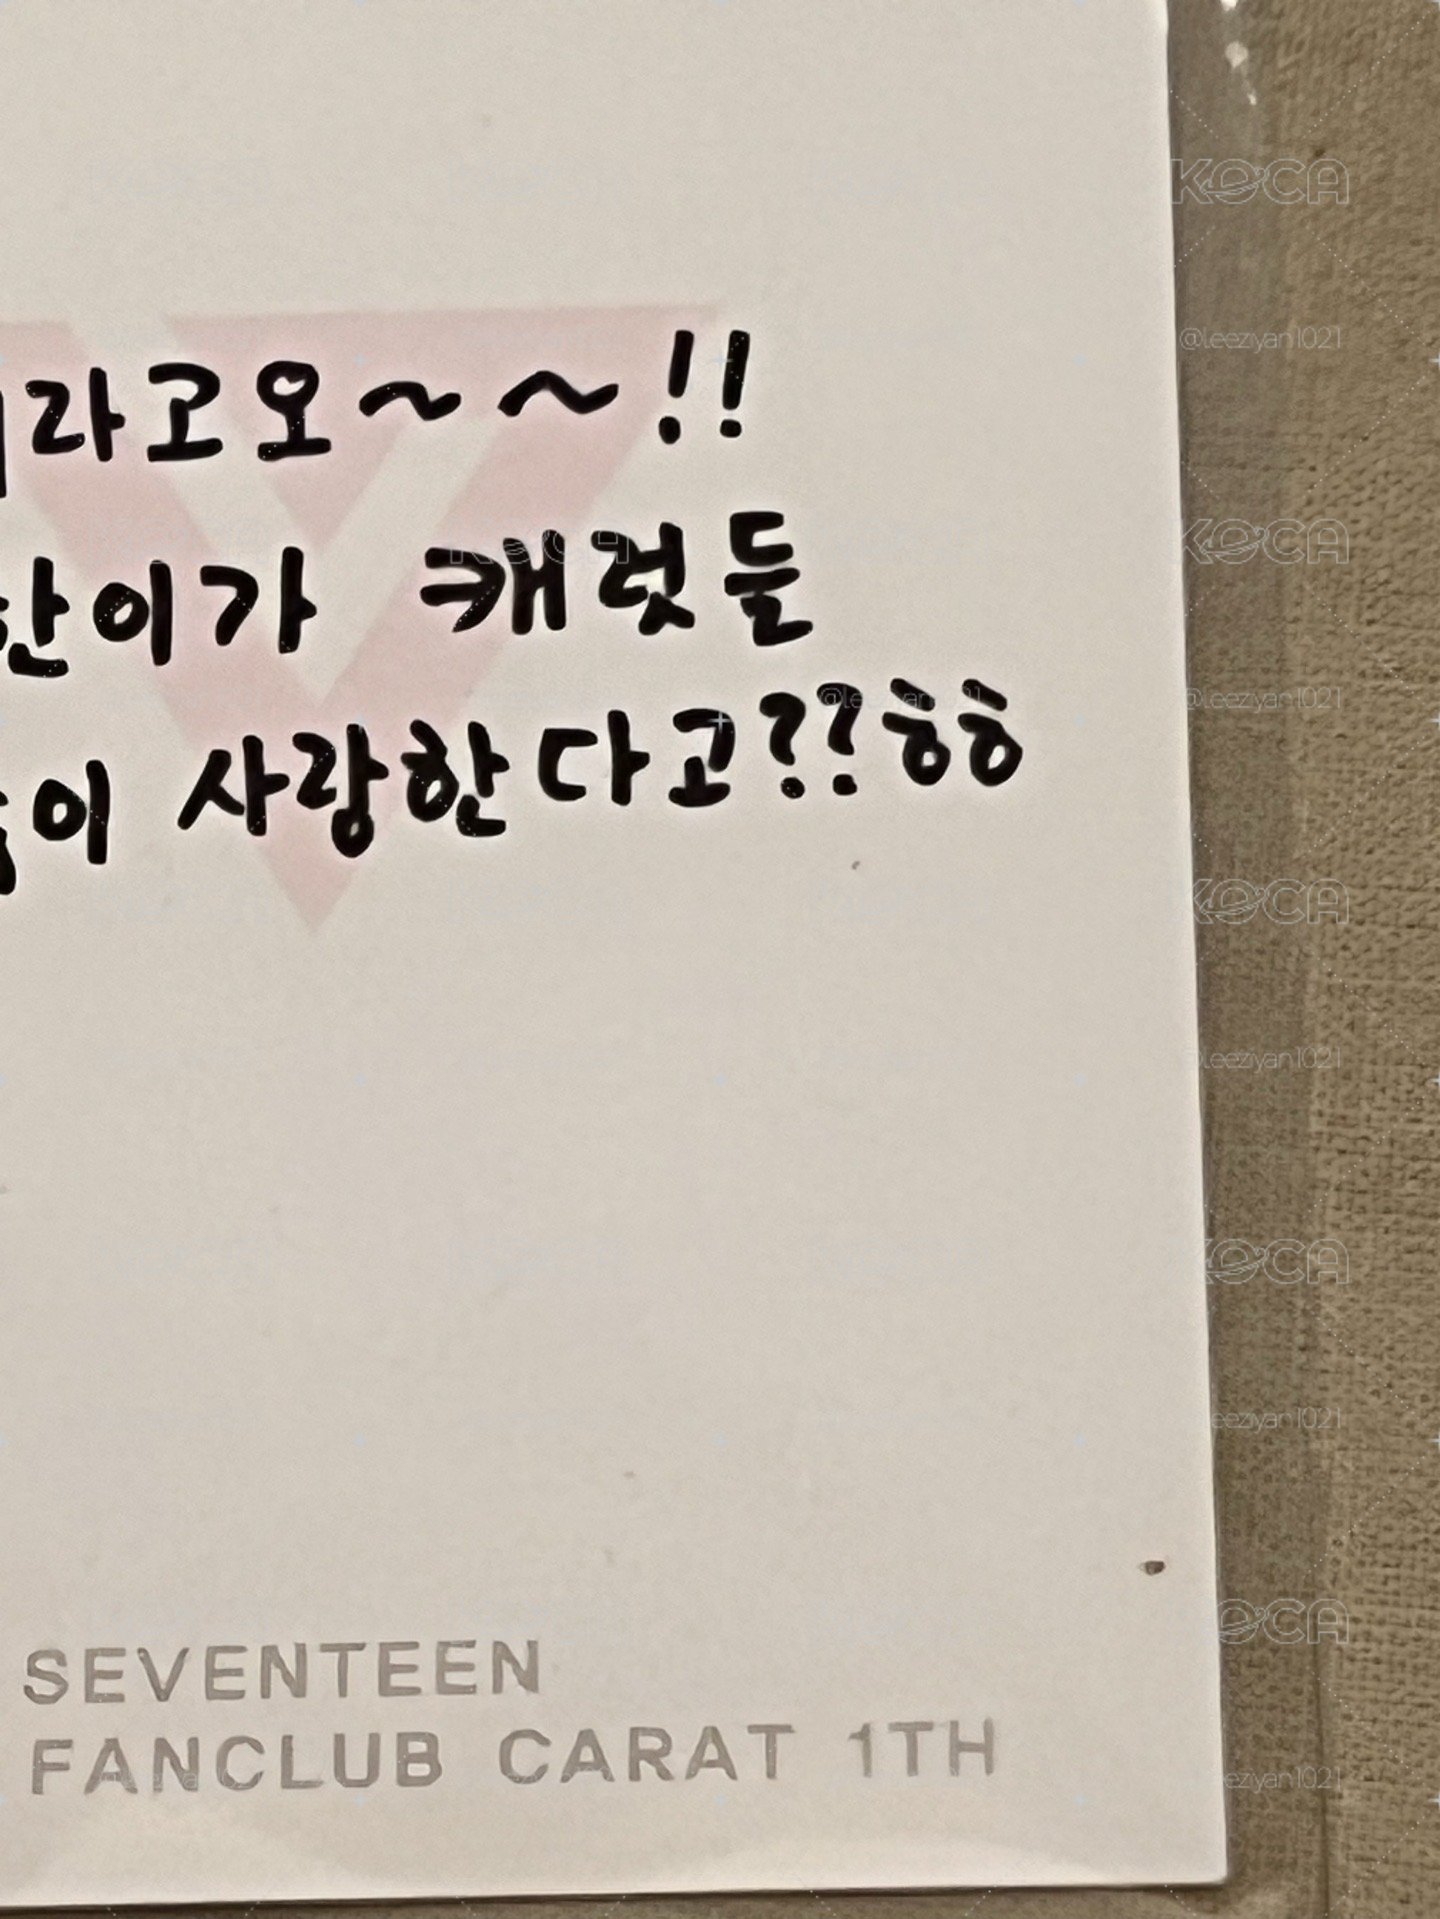 라고오~~!!
한이가 캐럿들
이 사랑한다고??ㅎㅎ
SEVENTEEN
FANCLUB CARAT 1TH
KOCA
@leeziyan1021
KOCA
@leeziyan1021
KOCA
@leeziyan1021
KOCA
leeziyan1021
KOCA
leeziyan1021